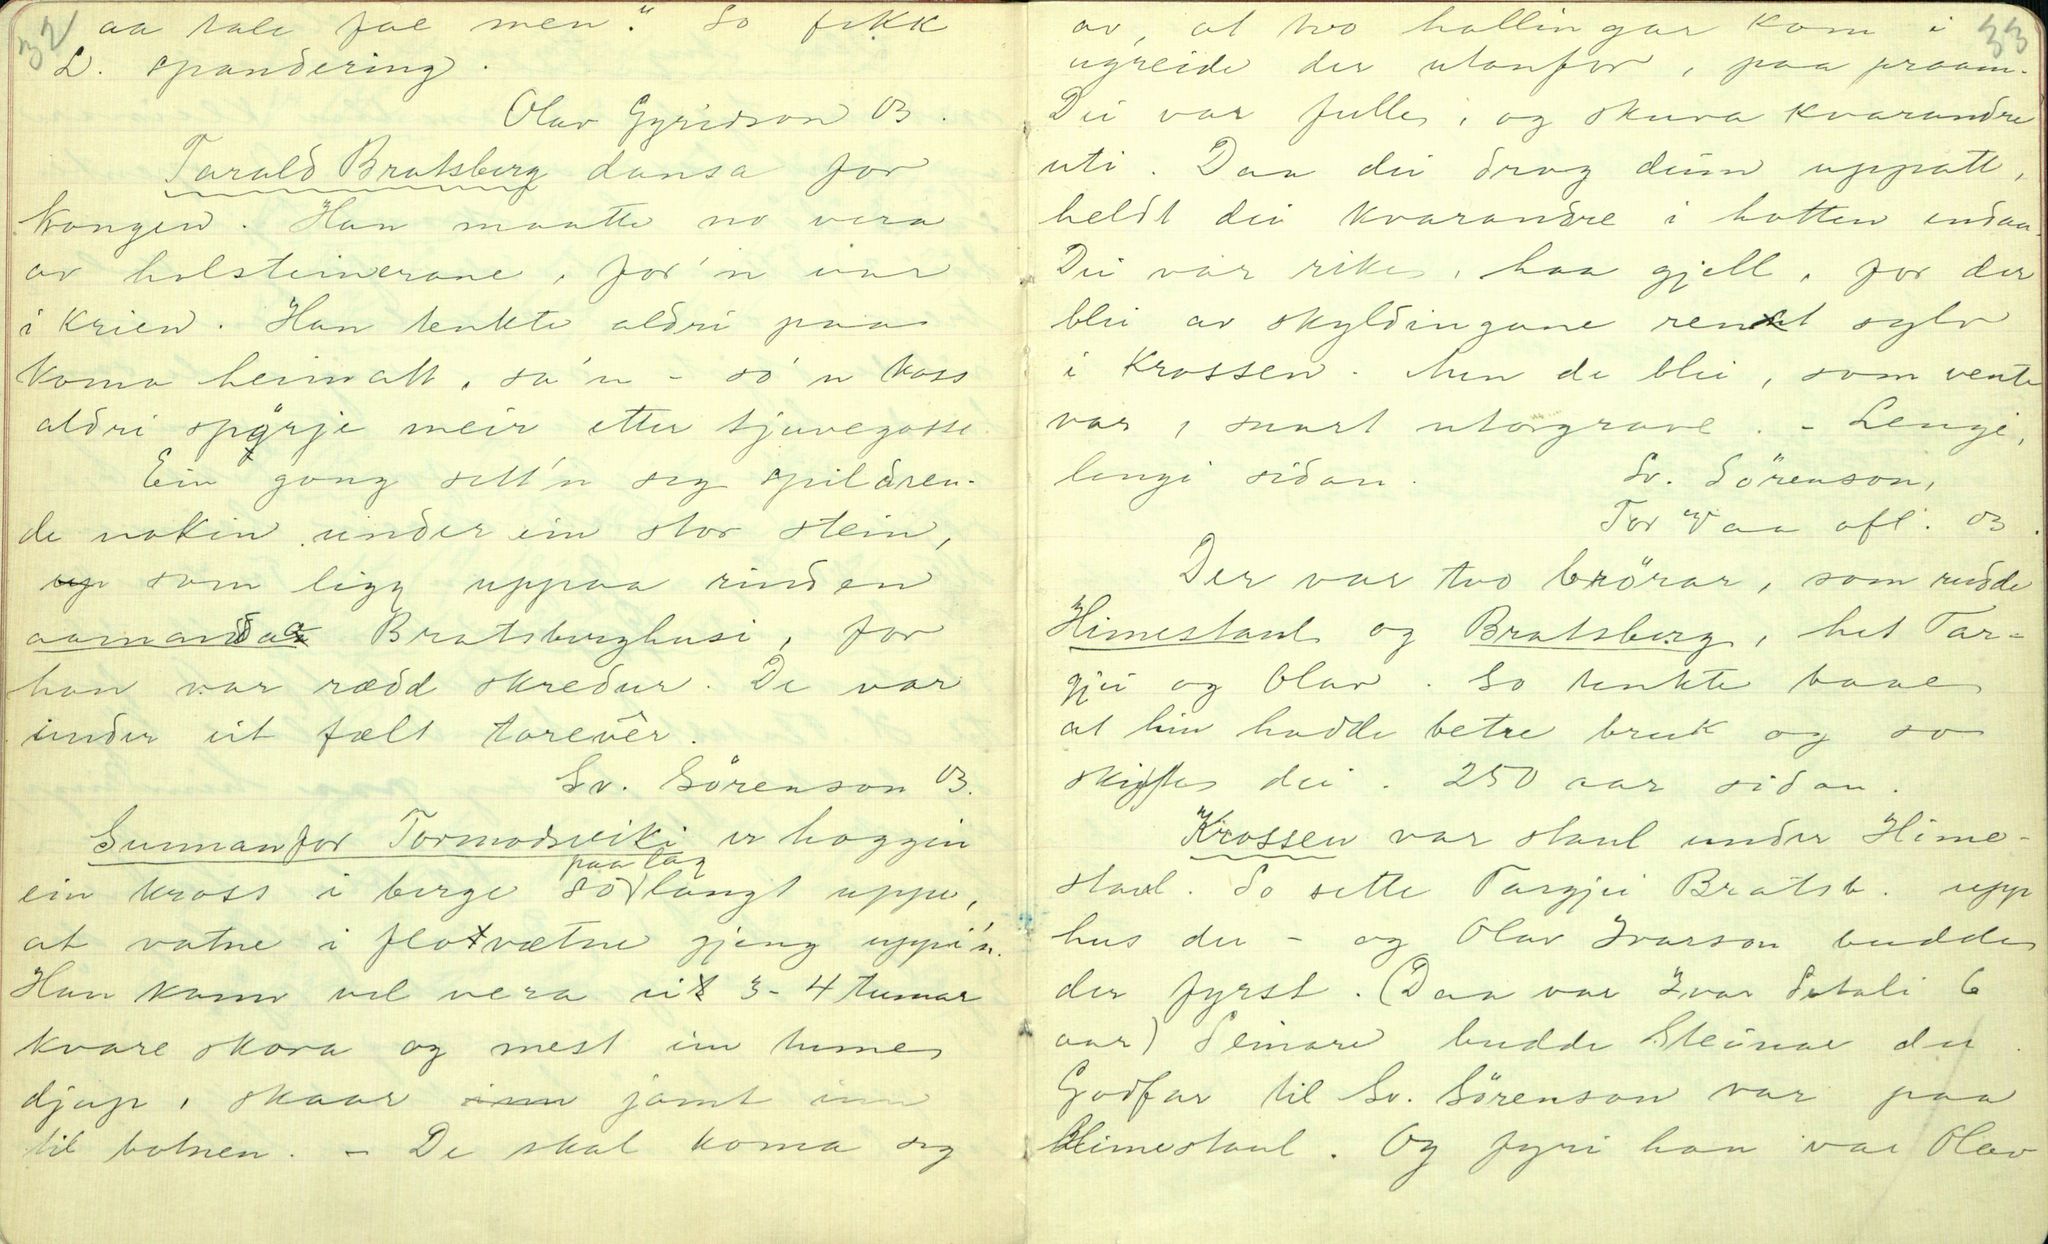 32
aa tale fae men." So fekk
L. spandering.
Olav Gyridson 03.
Tarald Bratsberg dansa for
kongen. Han maatte no vera
av holsteinerane, for'n var
i krien. Han tenkte aldri paa
koma heimatt, sa'n - so'n kass
aldri spørje meir etter tjuvegosse.
Ein gong sett'n seg spildren-
de nakin under ein stor stein,
og som ligg uppaa rinden
aamandaa Bratsberghusi, for
han var rædd skreður. De var
under eit fælt torever.
Sv. Sörenson 03.
Sunnanfor Tormodsviki er hoggin
ein kross i berge so paa lag langt uppe,
at vatne i flotvætne gjeng uppi'n.
Han kann vel vera eit 3-4 tumar
kvare skora og mest ein tume
djup, skaar inn jamt inn
til botnen. - De skal koma seg
33
av, at two hallingar kom i
ugreide der utanfor, paa praam.
Dei var fulle, og skuva kvarandre
uti. Daa dei drog deim uppatt,
heldt dei kvarandre i hotten endaa.
Dei var rike, haa gjell, for der
blei av skyldingane rennt sylv
i krossen. Men de blei, som vente
var, snart utorgrave. - Lengje,
lengje sidan. Sv. Sörenson,
Tor Vaa ofl. 03.
Der var two brörar, som rudde
Himestaul og Bratsberg, het Tar-
gjei og Olav. So tenkte baae
at hin hadde betre bruk og so
skifte dei. 250 aar sidan.
Krossen var staul under Hime-
staul. So sette Targjei Bratsb. upp
hus der - og Olav Ivarson budde
der fyrst. (Daa var Ivar Sstali 6
aar) Seinare budde Steinar der.
Godfar til Sv. Sörenson var paa
Himestaul. Og fyri han var Olav